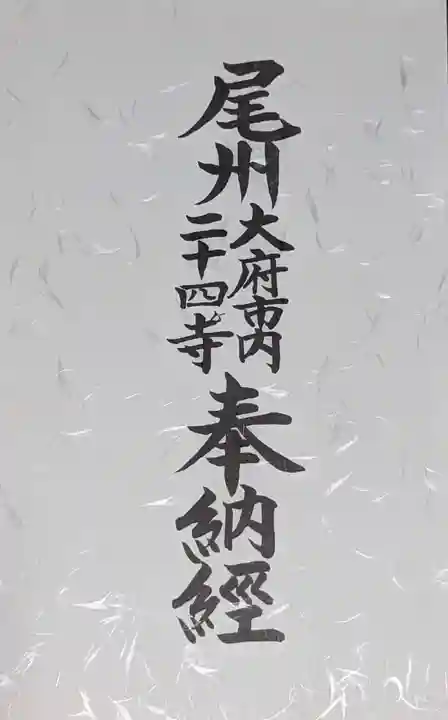 尾州
大府市内
二十四寺
奉納經